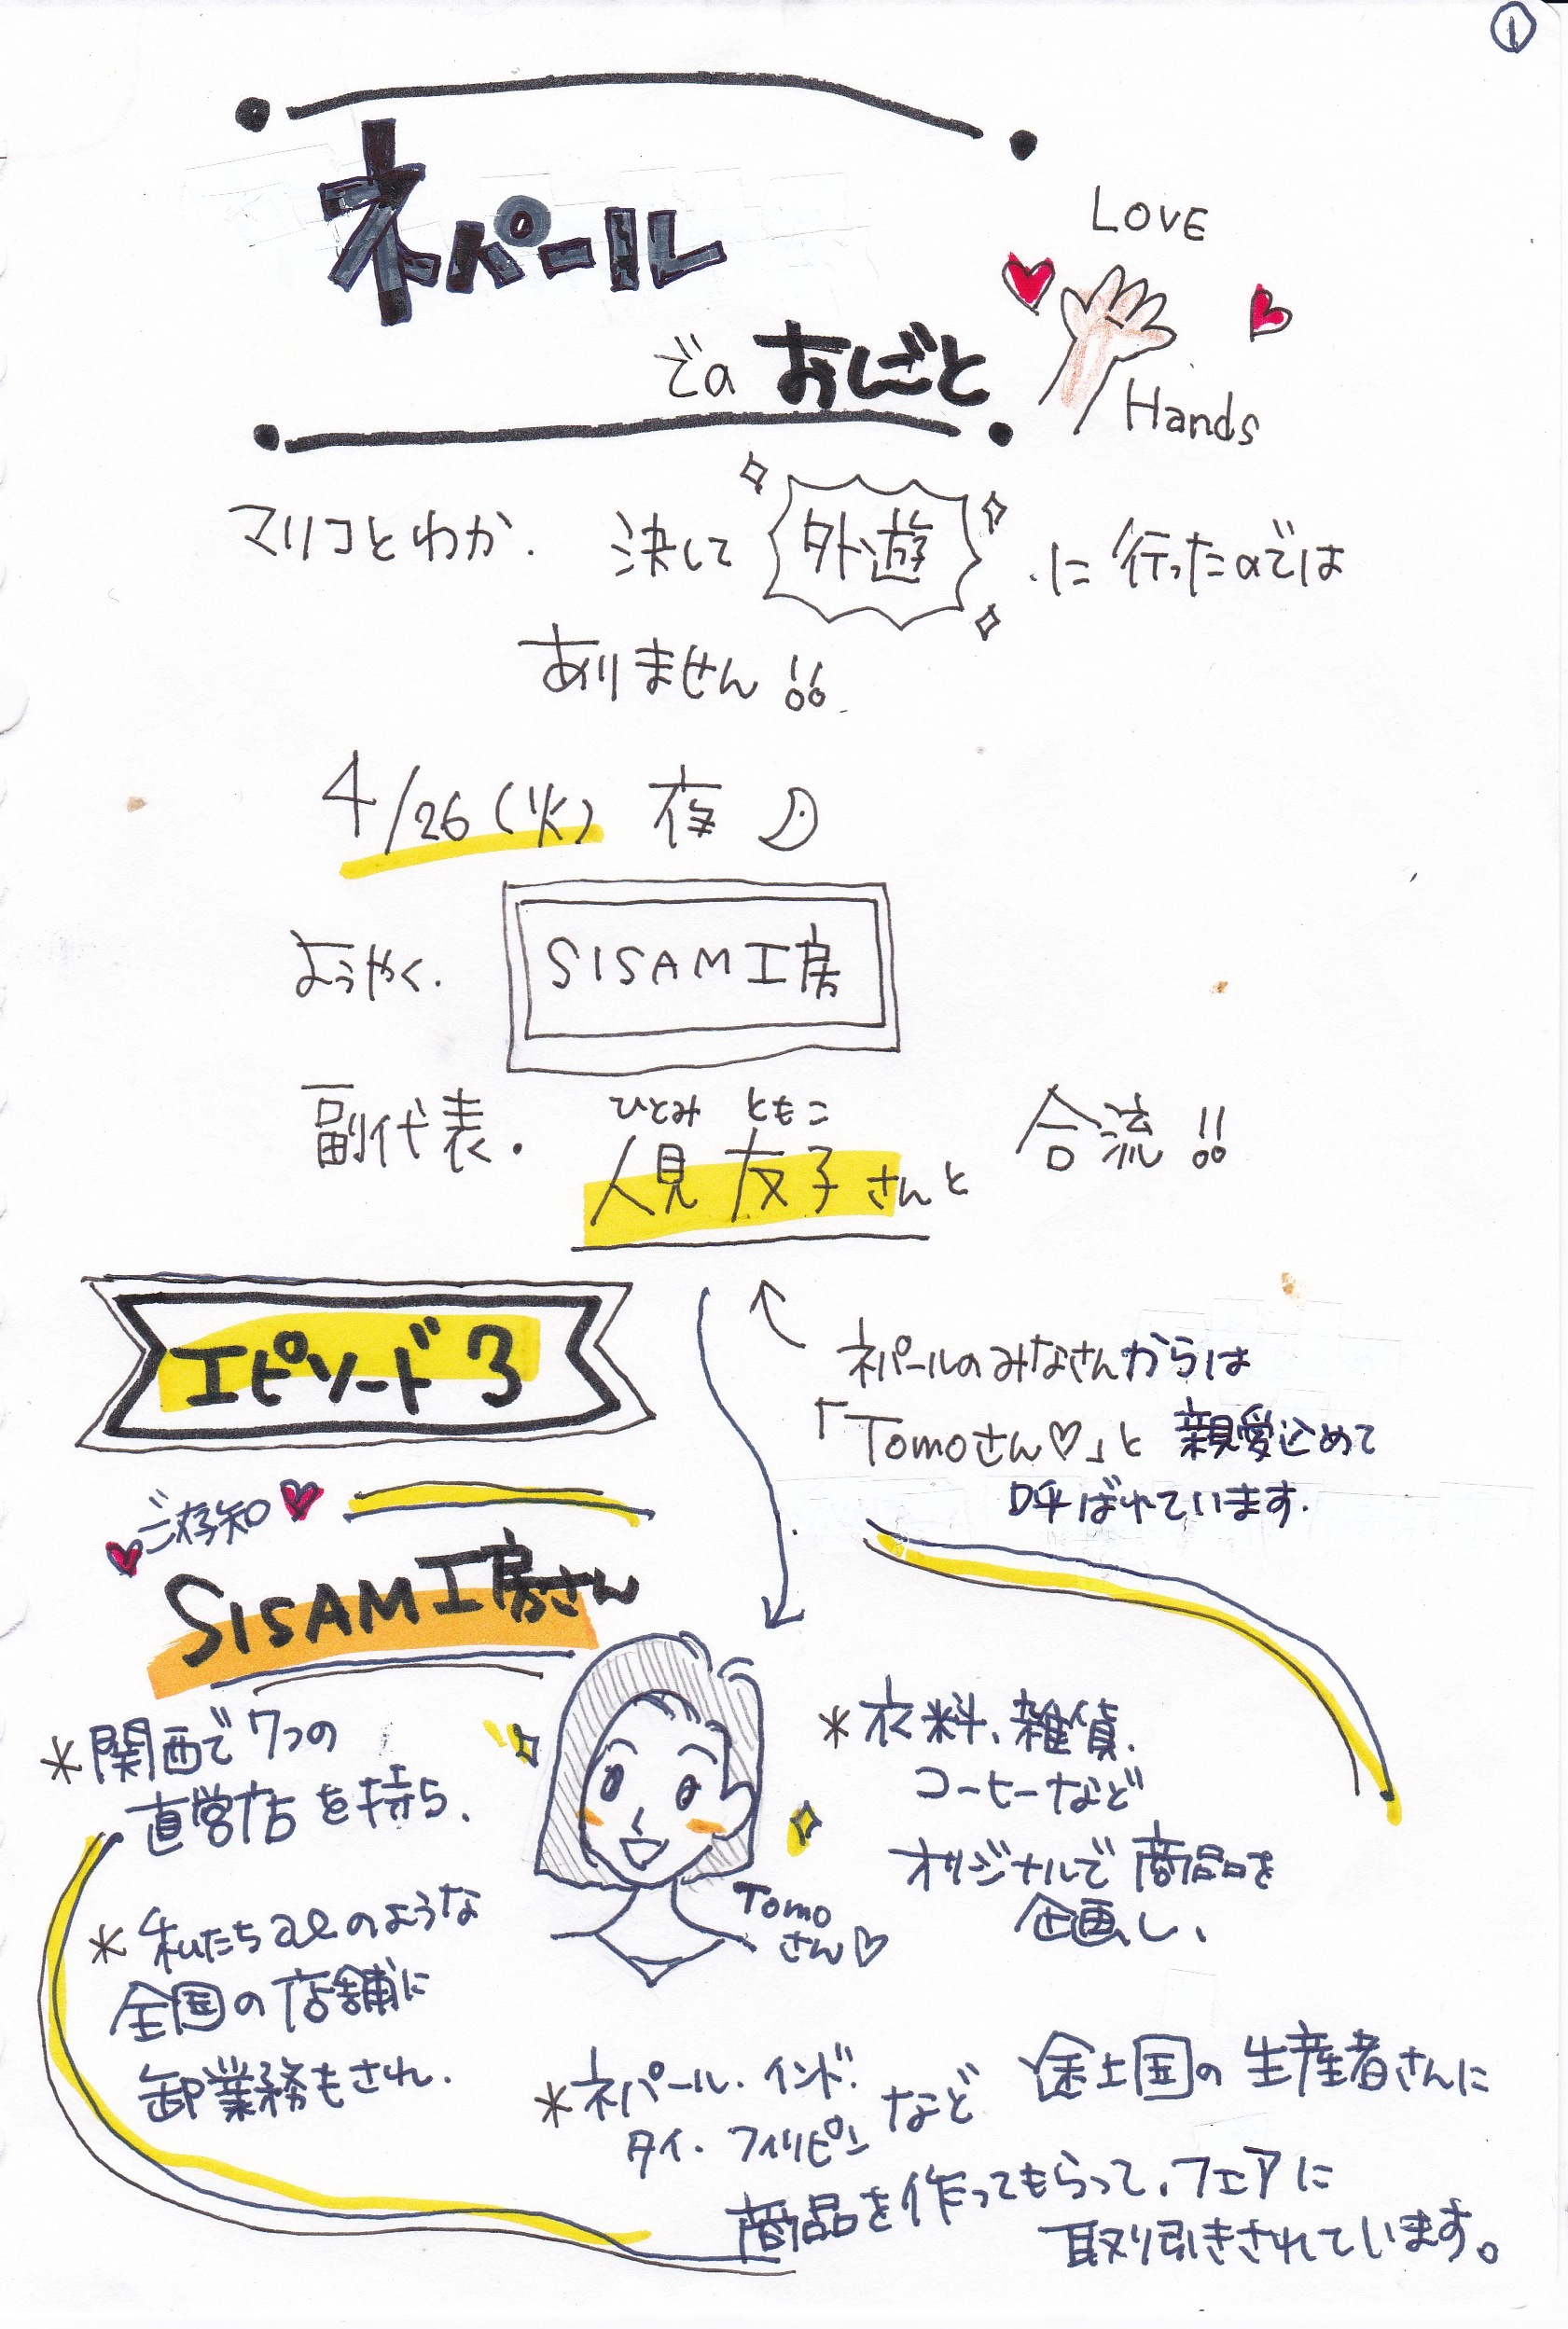 ①
ネパール
での おしごと
LOVE
Hands
マリコとわか、決して 外遊 に 行ったのでは
ありません!!
4/26(火) 夜
ようやく、 SISAM工房
副代表・ ひとみ ともこ
人見 友子さんと 合流!!
エピソード3
ネパールのみなさんからは
「Tomoさん♡」と 親愛込めて
呼ばれています.
ご存知
SISAM工房さん
*関西で7つの
直営店を持ち、
*私たちaeのような
全国の店舗に
卸業務もされ、
Tomo
さん♡
*衣料、雑貨、
コーヒーなど
オリジナルで商品を
企画し、
*ネパール、インド、
タイ、フィリピン など 途上国の 生産者さんに
商品を作ってもらって、フェアに
取り引きされています。